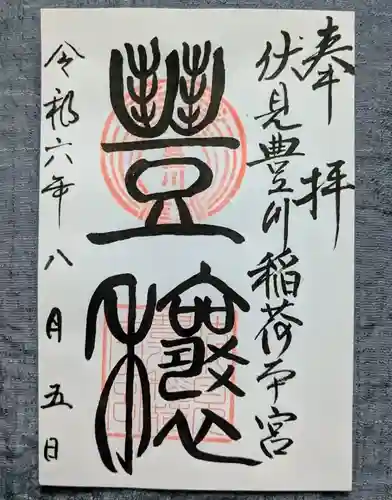 奉拝
伏見豊川稲荷本宮
豊穣
令和六年八月五日